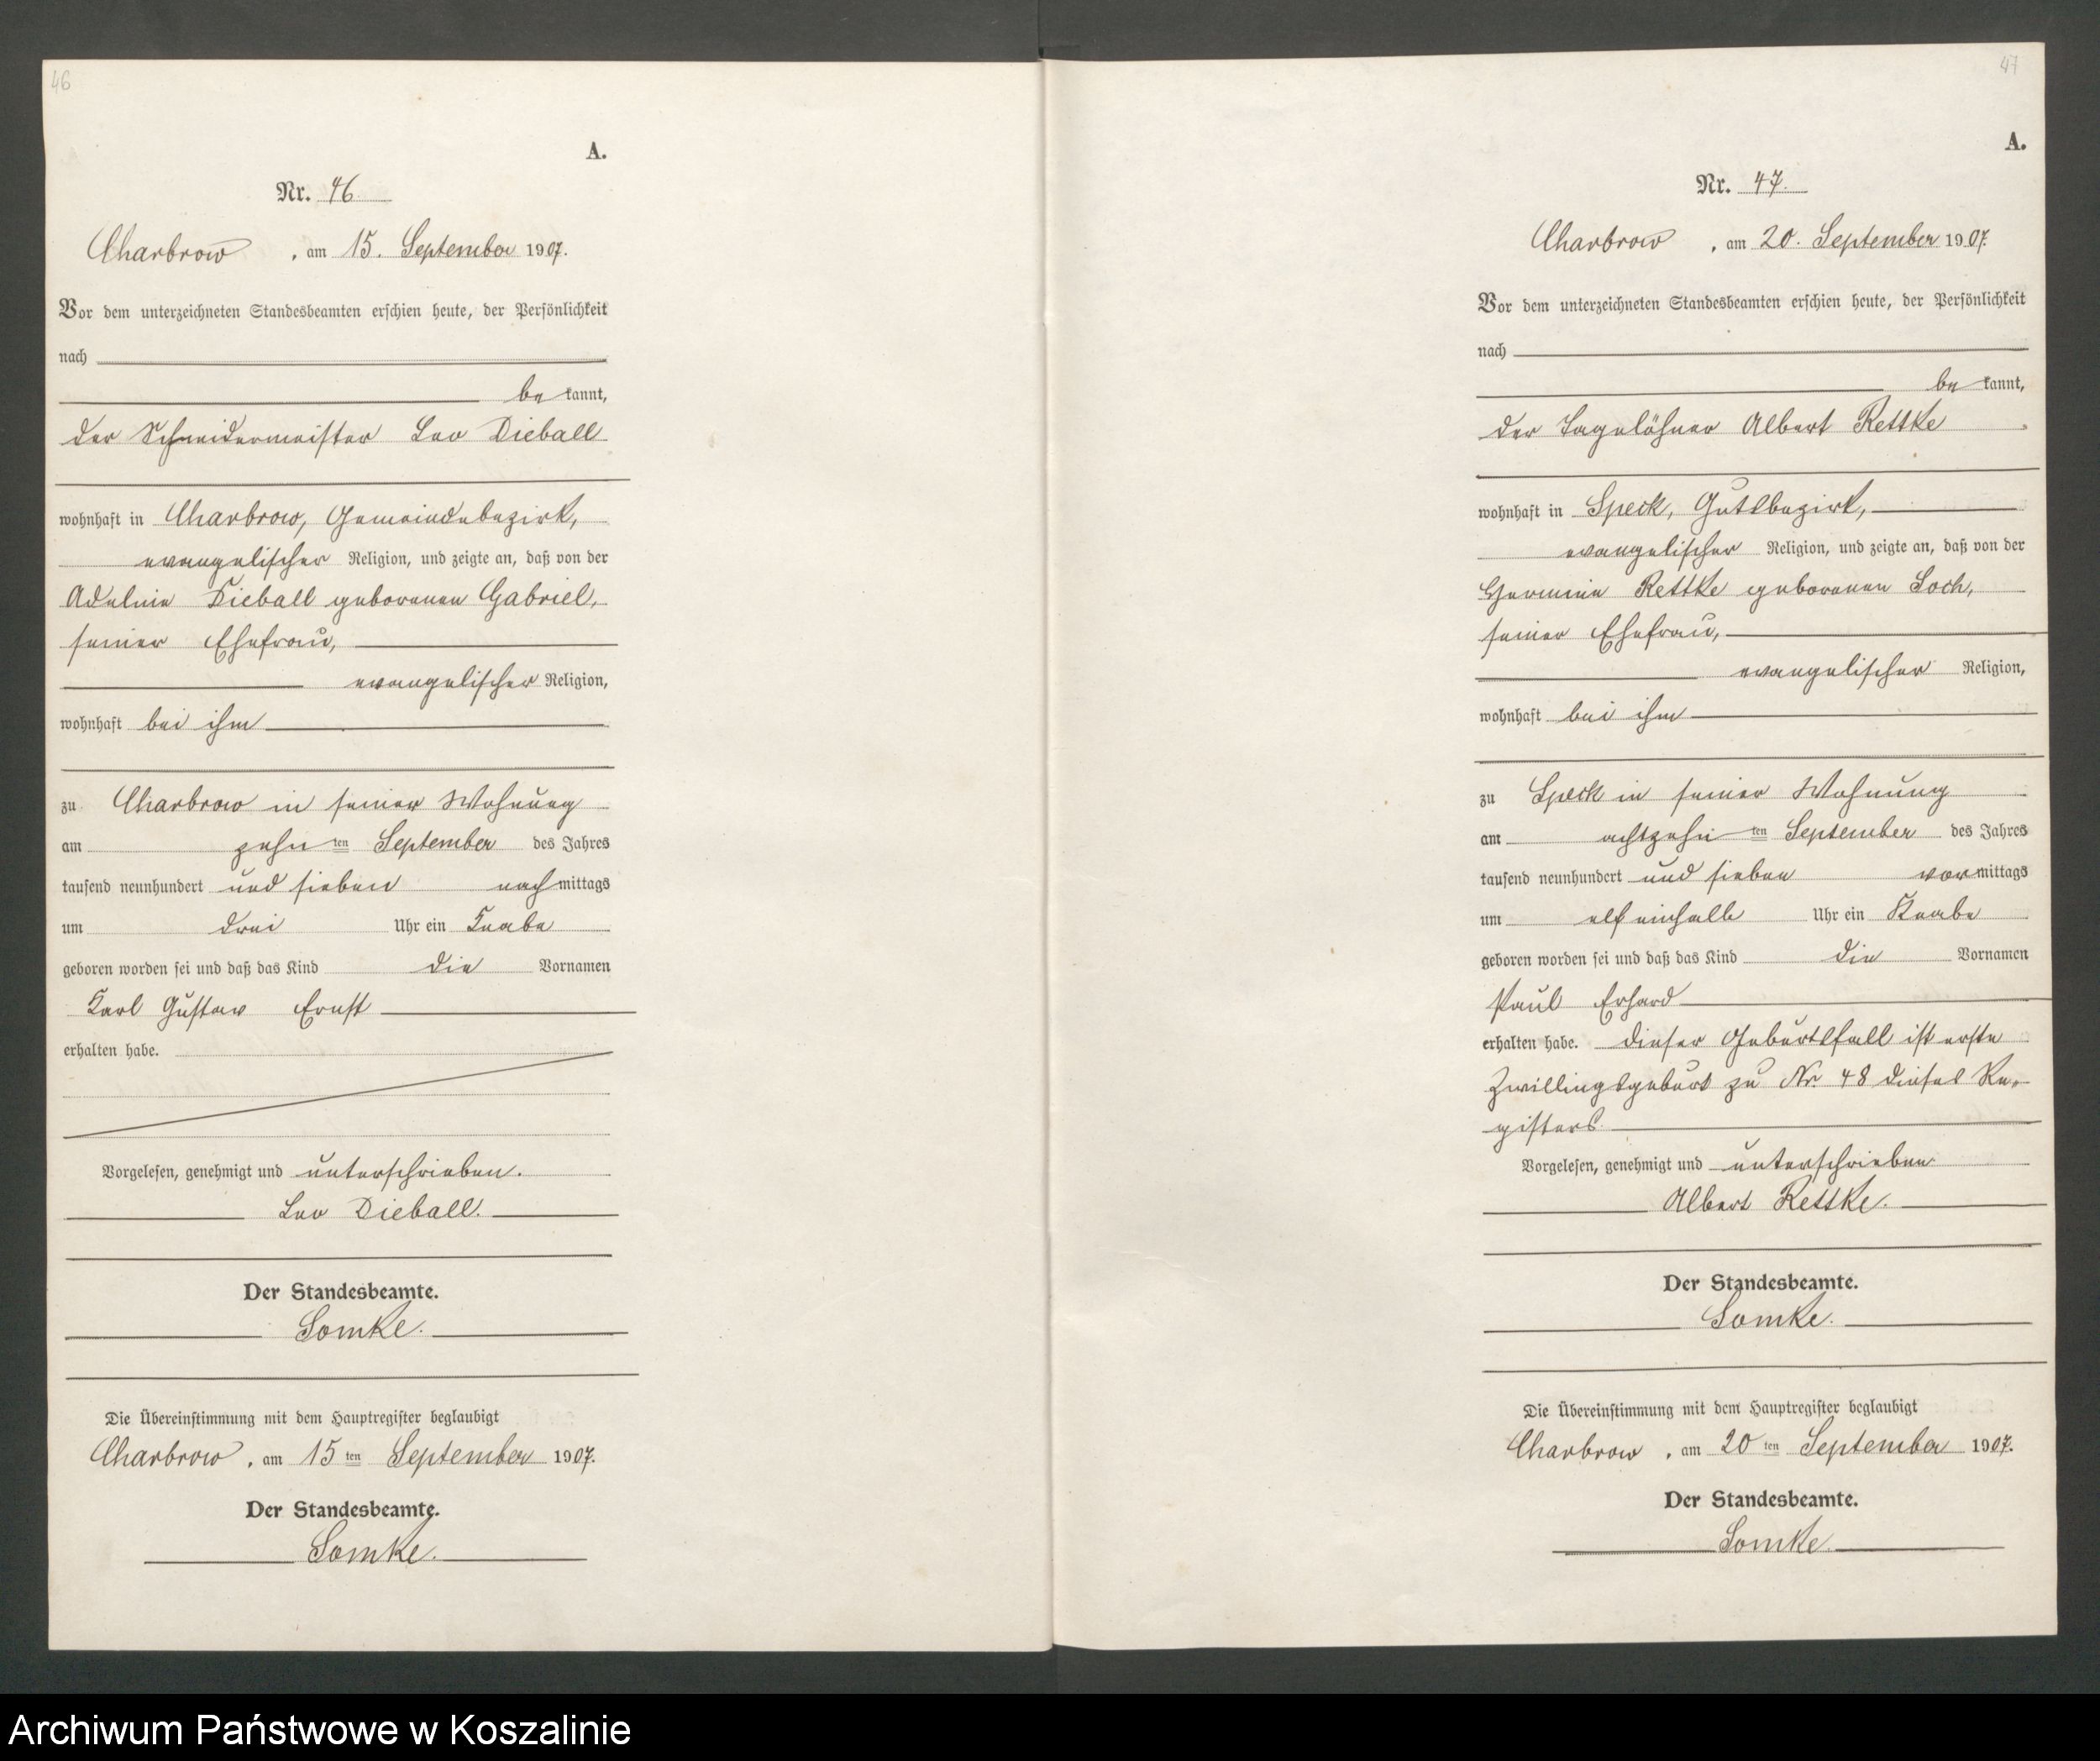 46
A.
Nr. 46
Charbrow, am 15. September 1907.
Vor dem unterzeichneten Standesbeamten erschien heute, der Persönlichkeit
nach
be kannt,
der Schneidermeister Leo Dieball
wohnhaft in Charbrow, Gemeindebezirk,
evangelischer Religion, und zeigte an, daß von der
Adeline Dieball geborenen Gabriel,
seiner Ehefrau,
evangelischer Religion,
wohnhaft bei ihm
zu Charbrow in seiner Wohnung
am zehn ten September des Jahres
tausend neunhundert und sieben nachmittags
um drei Uhr ein Knabe
geboren worden sei und daß das Kind die Vornamen
Karl Gustav Ernst
erhalten habe.
Vorgelesen, genehmigt und unterschrieben.
Leo Dieball.
Der Standesbeamte.
Lomke.
Die Übereinstimmung mit dem Hauptregister beglaubigt
Charbrow, am 15 ten September 1907.
Der Standesbeamte.
Lomke.
47
A.
Nr. 47.
Charbrow, am 20. September 1907.
Vor dem unterzeichneten Standesbeamten erschien heute, der Persönlichkeit
nach
be kannt,
der Tagelöhner Albert Rettke
wohnhaft in Speck, Gutsbezirk,
evangelischer Religion, und zeigte an, daß von der
Hermine Rettke geborenen Loch,
seiner Ehefrau,
evangelischer Religion,
wohnhaft bei ihm
zu Speck in seiner Wohnung
am achtzehn ten September des Jahres
tausend neunhundert und sieben vormittags
um elf einhalb Uhr ein Knabe
geboren worden sei und daß das Kind die Vornamen
Paul Erhard
erhalten habe. Dieser Geburtsfall ist erste
Zwillingsgeburt zu Nr. 48 dieses Re-
gisters.
Vorgelesen, genehmigt und unterschrieben
Albert Rettke.
Der Standesbeamte.
Lomke.
Die Übereinstimmung mit dem Hauptregister beglaubigt
Charbrow, am 20 ten September 1907.
Der Standesbeamte.
Lomke.
Archiwum Państwowe w Koszalinie